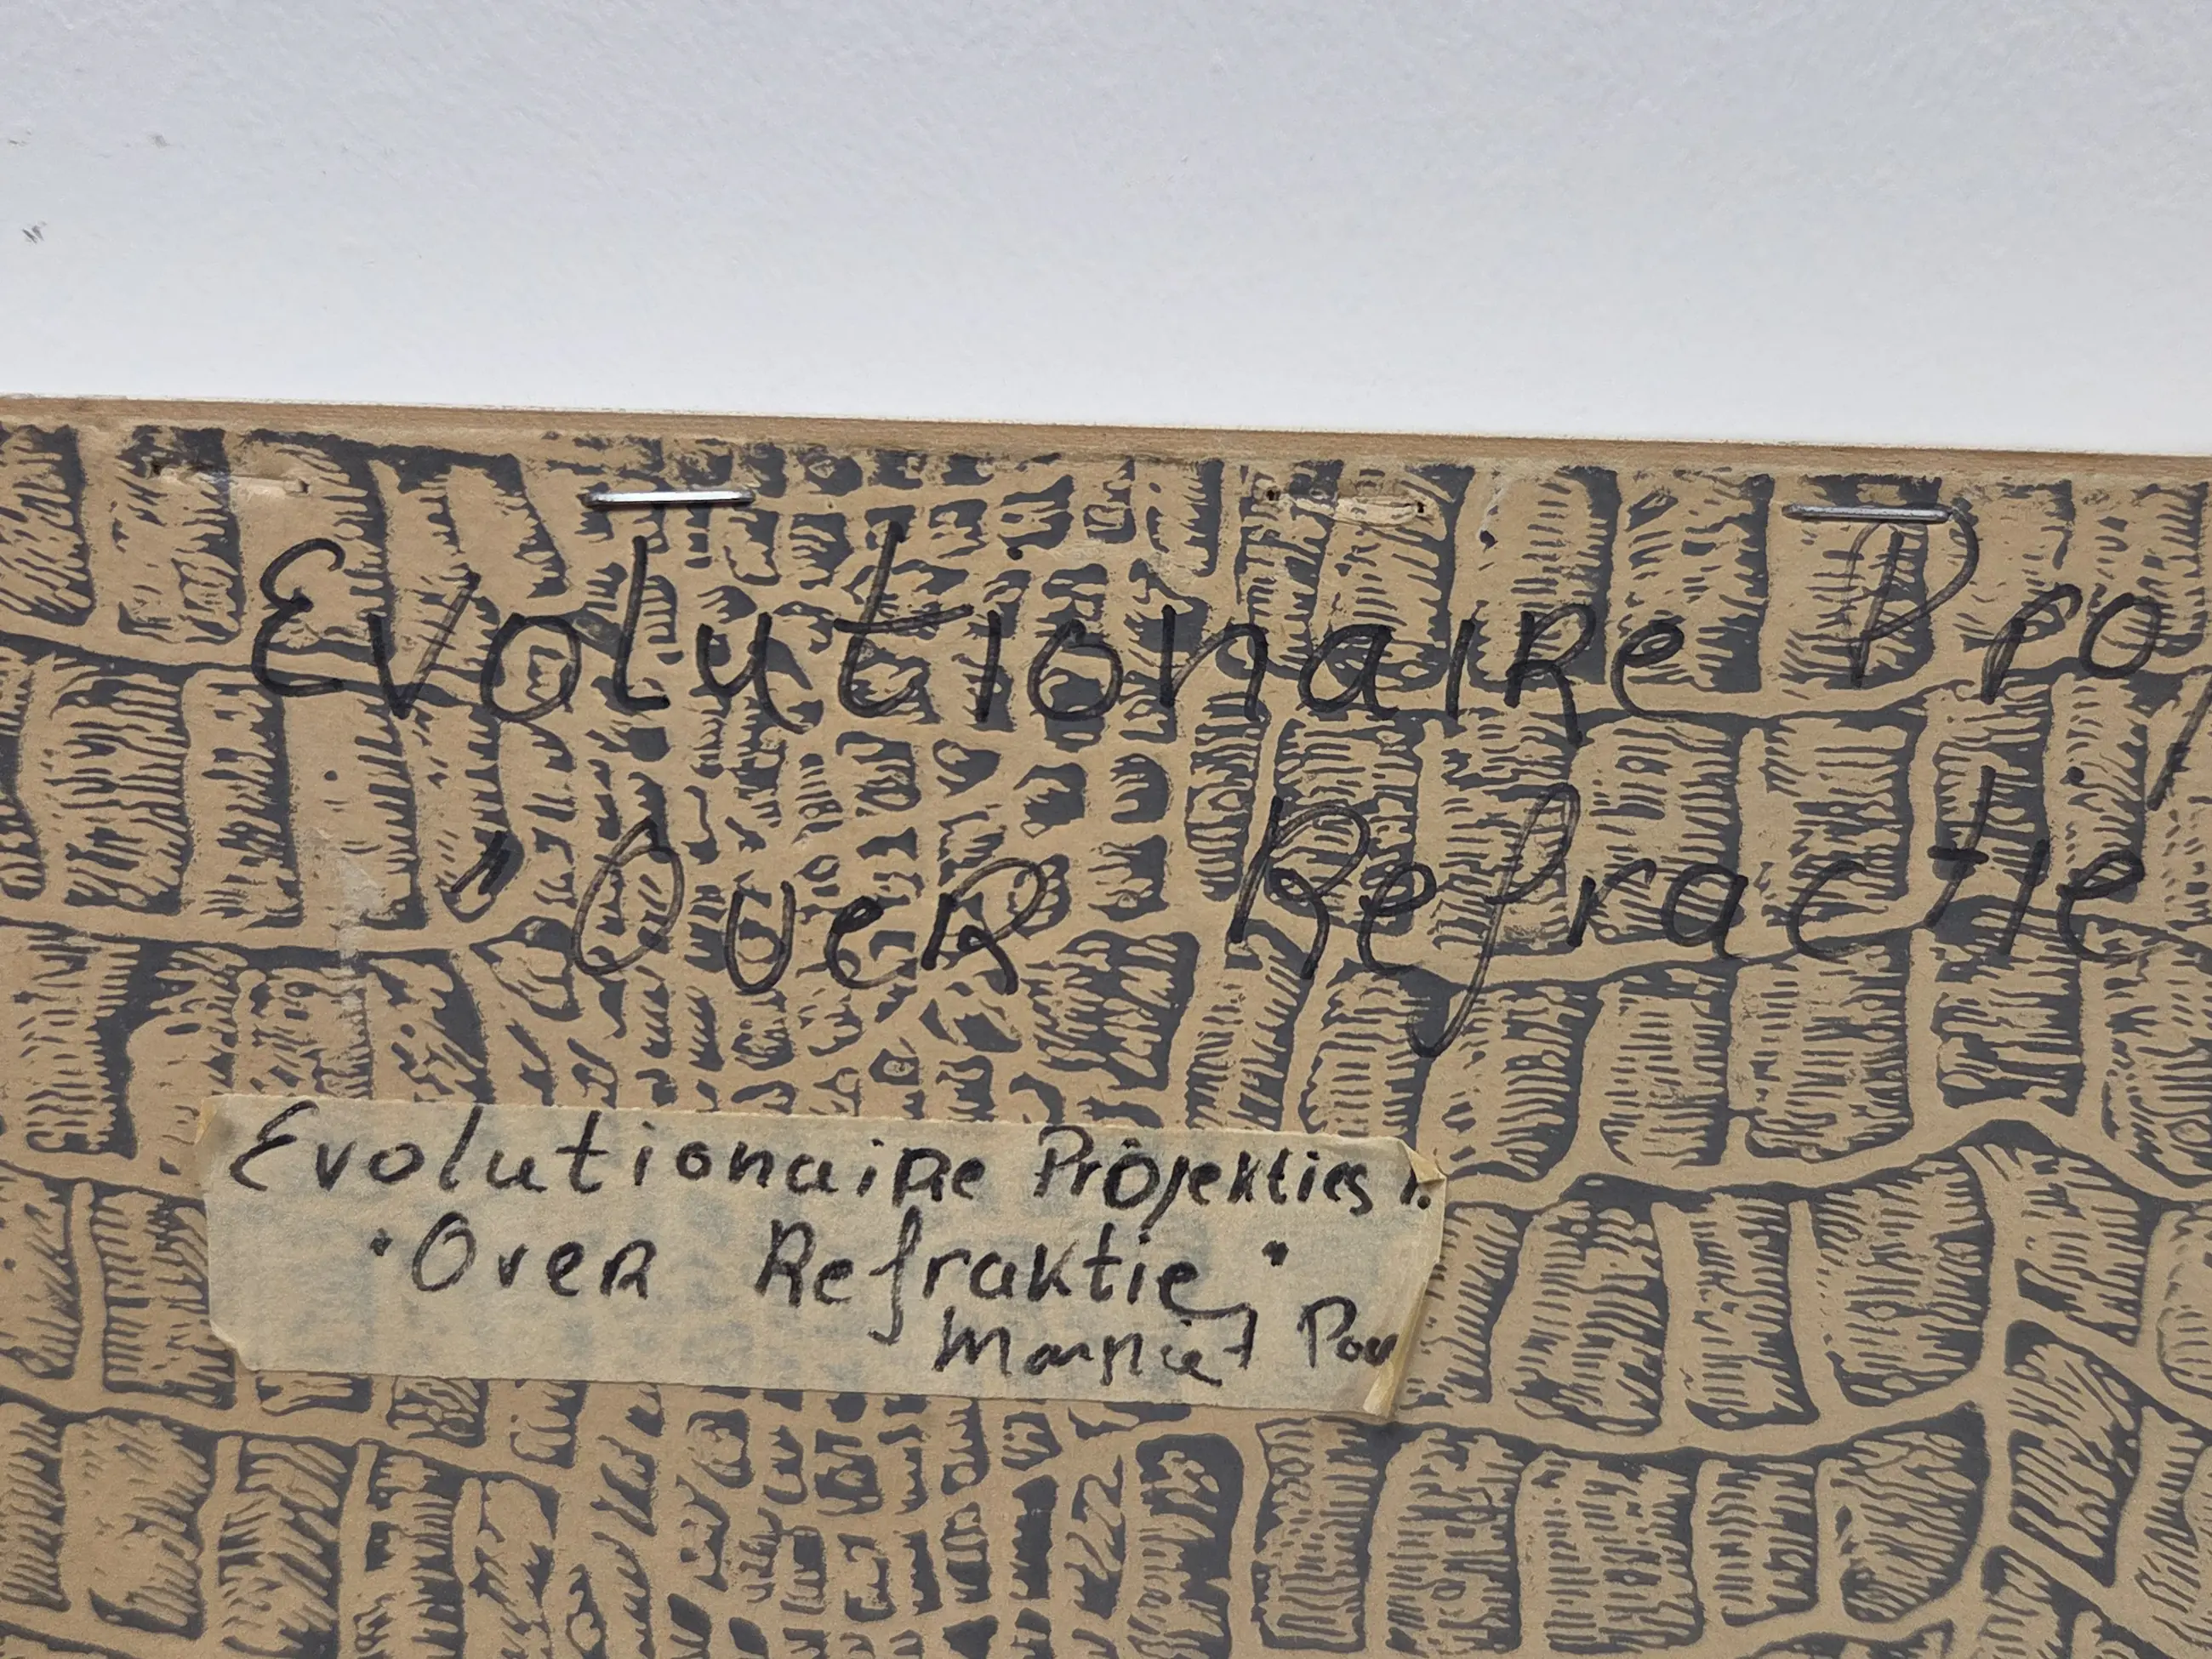 Evolutionaire Proj
"Over Refractie
Evolutionaire Projekties 1.
"Over Refraktie"
Marriet Pou